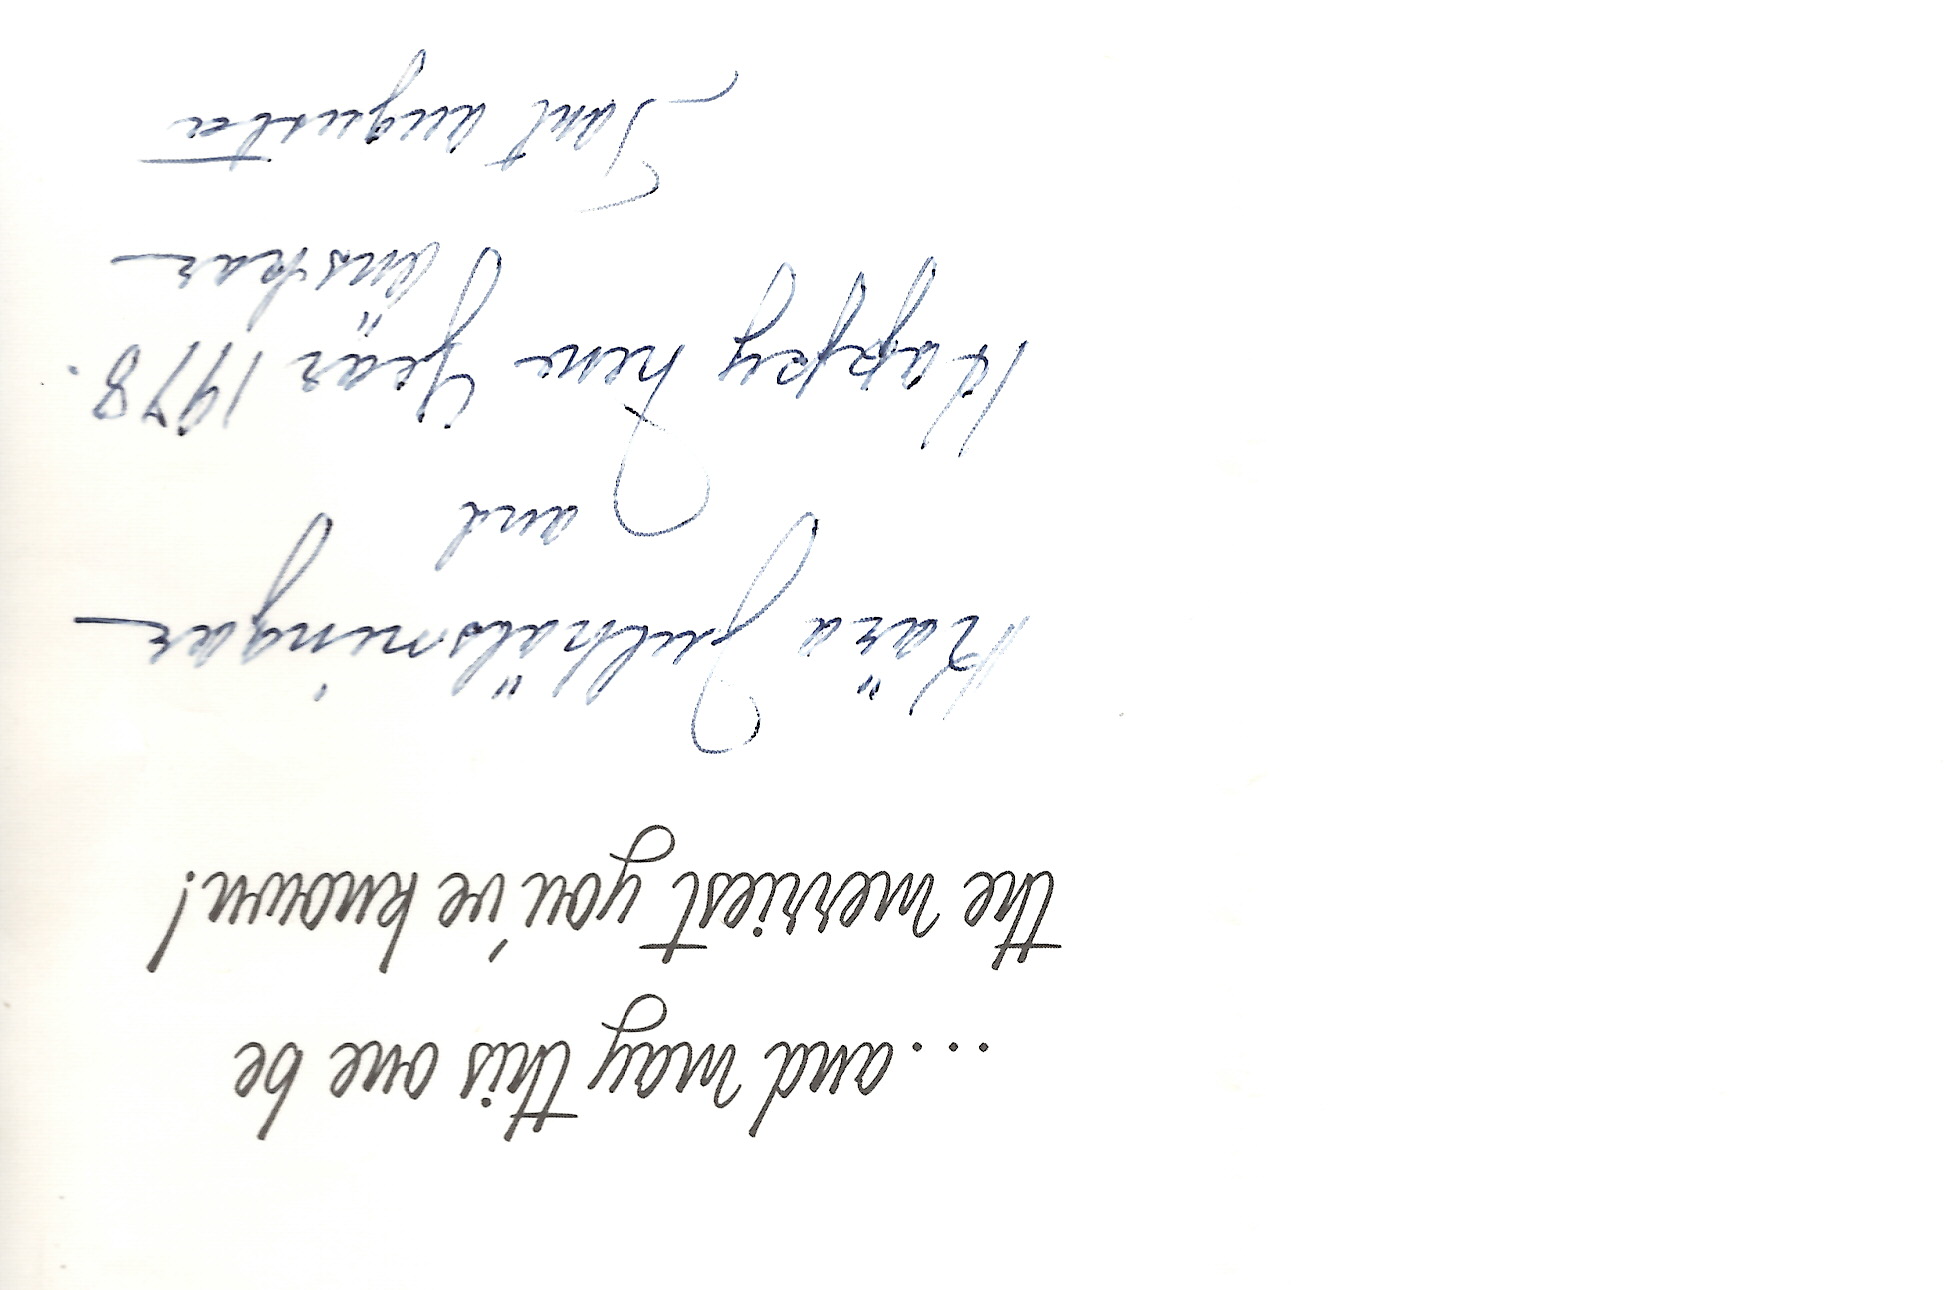 ...and may this one be
the merriest you've known!
Kära Julhälsningar
and
Happy new Year 1978.
önskar
Tant Augusta